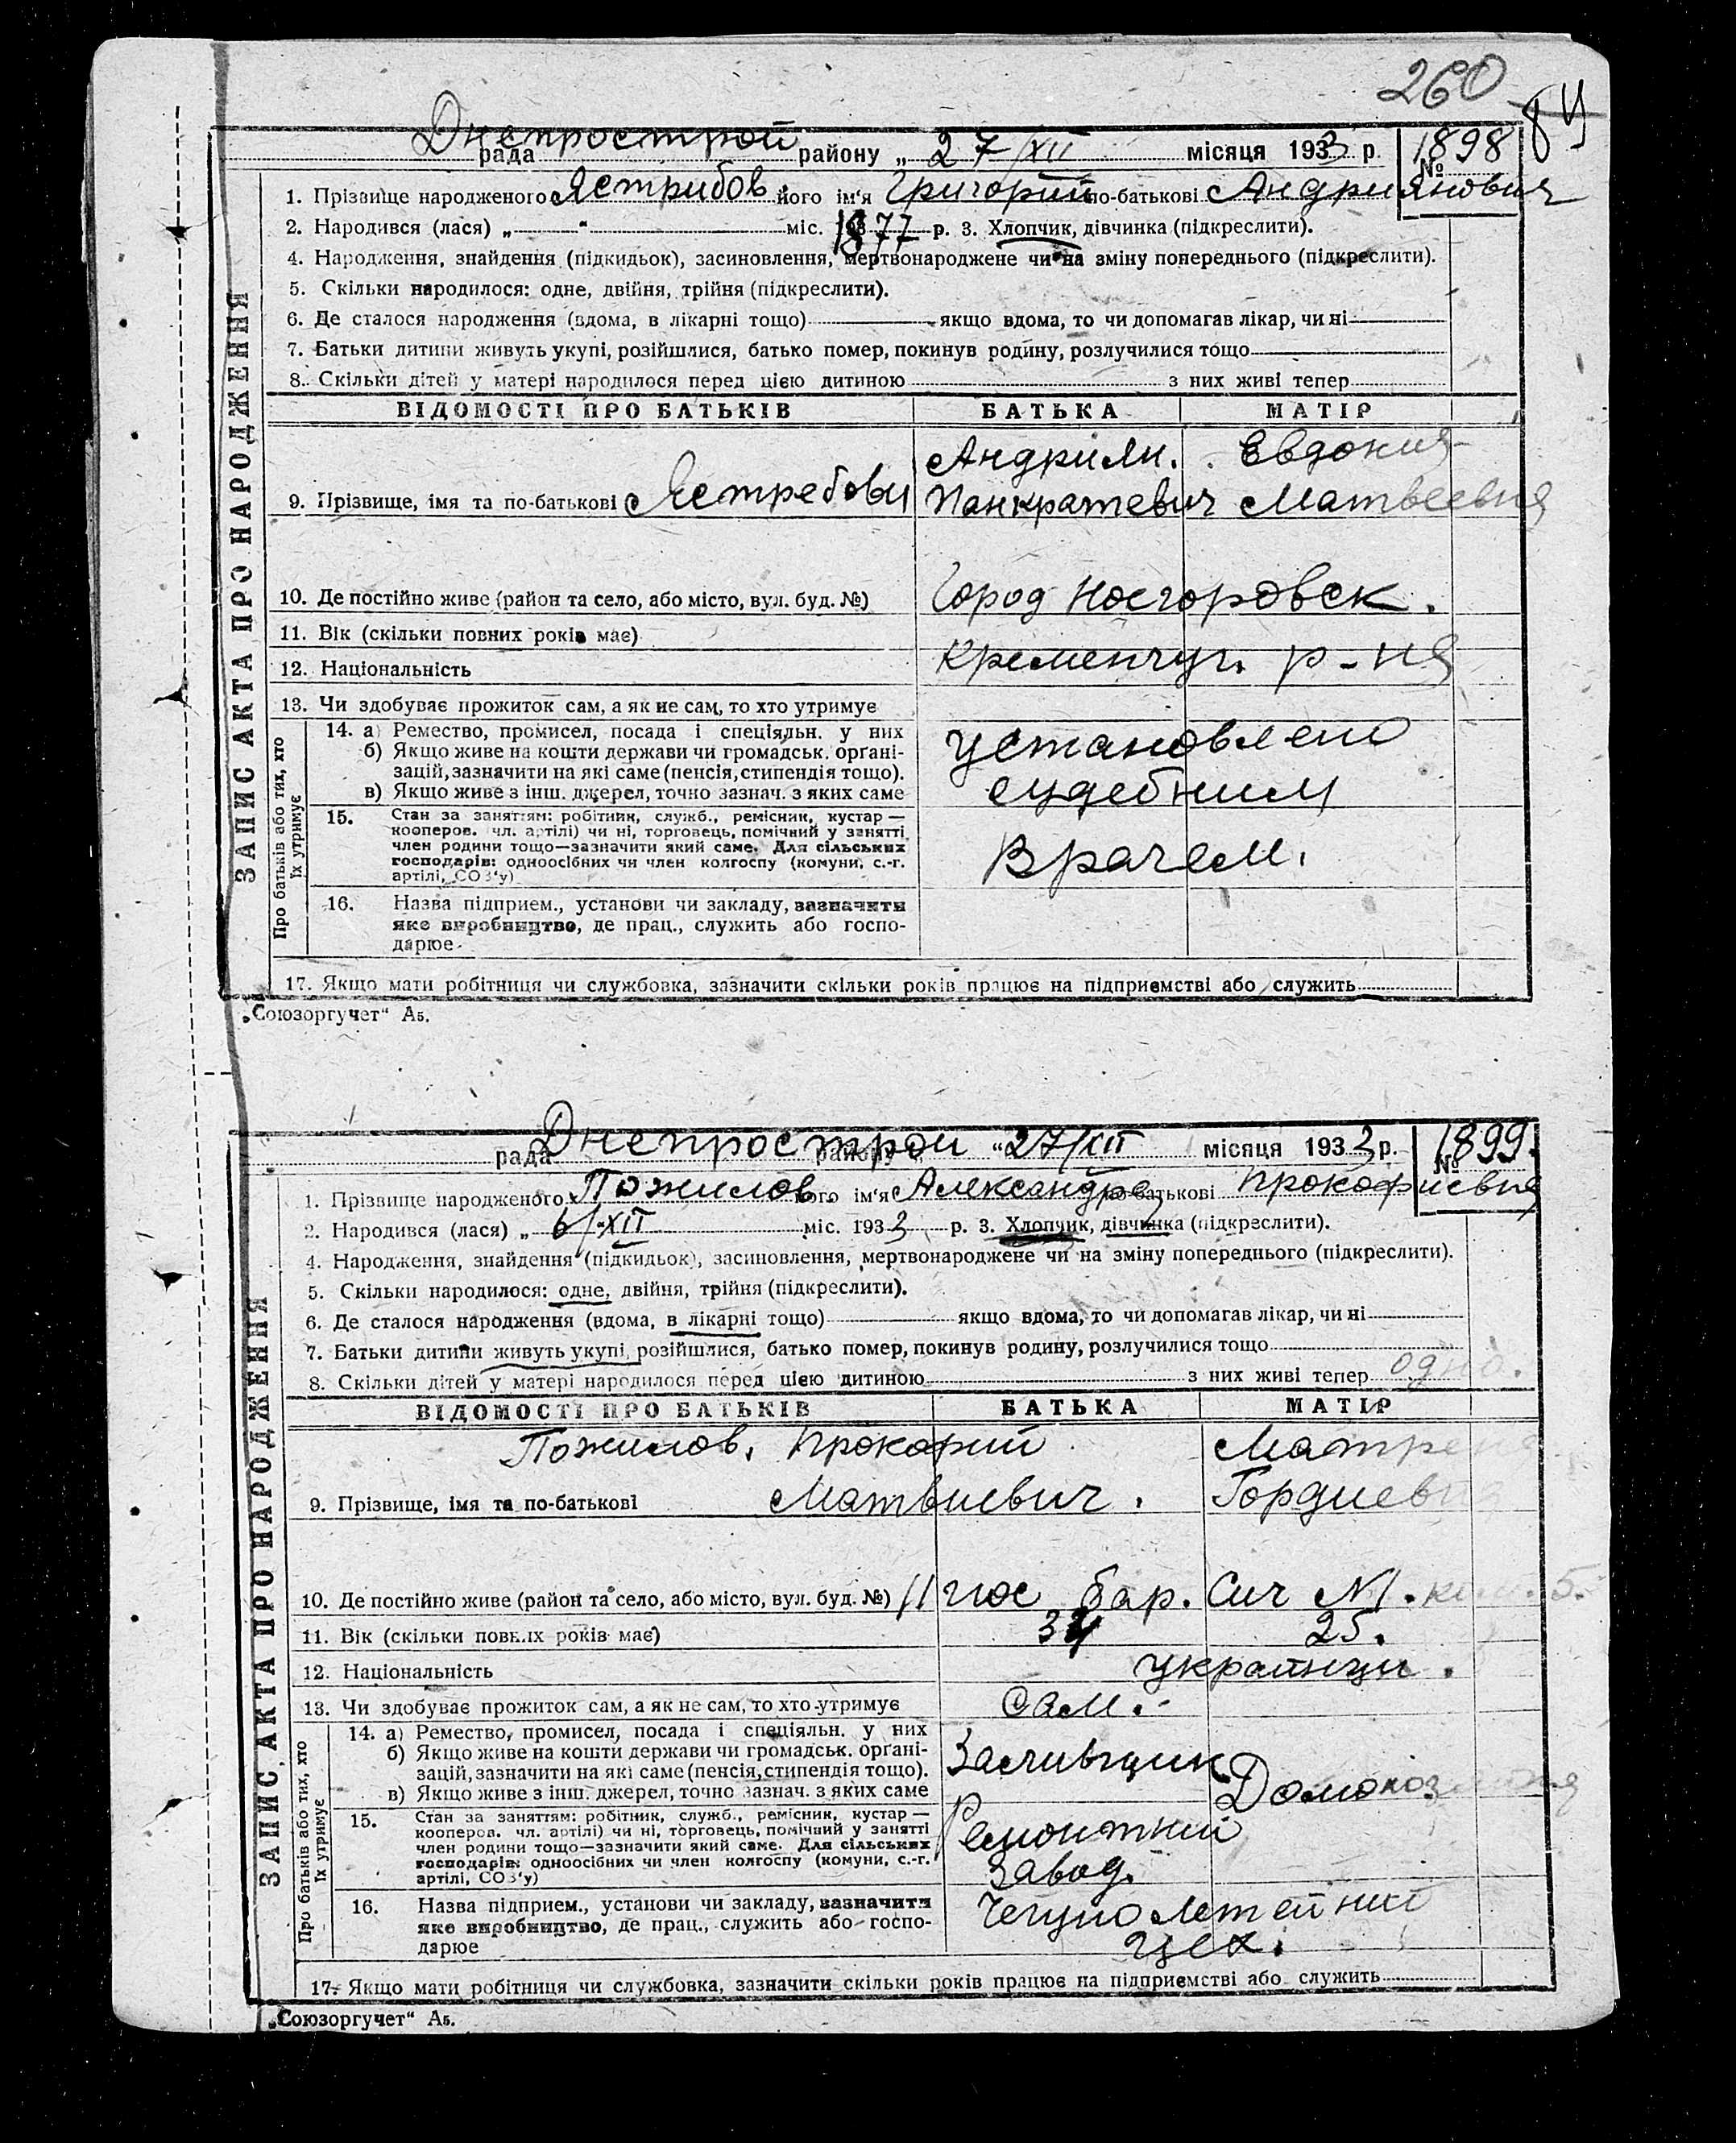 260
84
Днепрострой
рада району „ 27/XII місяця 1933 р № 1898
1. Прізвище народженого Ястрибов його ім'я Григорий по-батькові Андриянович
2. Народився (лася) „ “ міс. 1877 р. 3. Хлопчик, дівчинка (підкреслити).
4. Народження, знайдення (підкидьок), засиновлення, мертвонароджене чи на зміну попереднього (підкреслити).
5. Скільки народилося: одне, двійня, трійня (підкреслити).
6. Де сталося народження (вдома, в лікарні тощо) якщо вдома, то чи допомагав лікар, чи ні
7. Батьки дитини живуть укупі, розійшлися, батько помер, покинув родину, розлучилися тощо
8. Скільки дітей у матері народилося перед цією дитиною з них живі тепер
ЗАПИС АКТА ПРО НАРОДЖЕННЯ
ВІДОМОСТІ ПРО БАТЬКІВ БАТЬКА МАТІР
Андриян. Евдокия
9. Прізвище, імя та по-батькові Ястребови Панкратевич Матвеевна
10. Де постійно живе (район та село, або місто, вул. буд. №) Город
11. Вік (скільки повних років має)
12. Національність Кременчуг. р-на
13. Чи здобуває прожиток сам, а як не сам, то хто утримує
Про батьків або тих, хто їх утримує
14. а) Ремество, промисел, посада і спеціяльн. у них установлено
б) Якщо живе на кошти держави чи громадськ. органі-
зацій, зазначити на які саме (пенсія, стипендія тощо).
в) Якщо живе з інш. джерел, точно зазнач. з яких саме судебним
15. Стан за заняттям: робітник, служб., ремісник, кустар —
кооперов. чл. артілі) чи ні, торговець, помічний у занятті
член родини тощо—зазначити який саме. Для сільських Врачем.
господарів: одноосібних чи член колгоспу (комуни, с.-г.
артілі, СОЗ'у)
16. Назва підприєм., установи чи закладу, зазначити
яке виробництво, де прац., служить або госпо-
дарює
17. Якщо мати робітниця чи службовка, зазначити скільки років працює на підприємстві або служить
„Союзоргучет“ А5.
Днепрострой
рада району „ “ 27/XII місяця 1933 р. № 1899.
1. Прізвище народженого Пожилов. його ім'я Александра по-батькові Прокофиевна
2. Народився (лася) „ 6/XII міс. 1933 р. 3. Хлопчик, дівчинка (підкреслити).
4. Народження, знайдення (підкидьок), засиновлення, мертвонароджене чи на зміну попереднього (підкреслити).
5. Скільки народилося: одне, двійня, трійня (підкреслити).
6. Де сталося народження (вдома, в лікарні тощо) якщо вдома, то чи допомагав лікар, чи ні
7. Батьки дитини живуть укупі, розійшлися, батько помер, покинув родину, розлучилися тощо
8. Скільки дітей у матері народилося перед цією дитиною з них живі тепер одна.
ЗАПИС АКТА ПРО НАРОДЖЕННЯ
ВІДОМОСТІ ПРО БАТЬКІВ БАТЬКА МАТІР
Пожилов. Прокофий Матрена
9. Прізвище, імя та по-батькові Матвиевич. Гордиевна
10. Де постійно живе (район та село, або місто, вул. буд. №) 11 пос бар. Сич №1. ком. 5.
11. Вік (скільки повних років має) 34 25.
12. Національність украинци.
13. Чи здобуває прожиток сам, а як не сам, то хто утримує Сам.
Про батьків або тих, хто їх утримує
14. а) Ремество, промисел, посада і спеціяльн. у них
б) Якщо живе на кошти держави чи громадськ. органі- Заливщик
зацій, зазначити на які саме (пенсія, стипендія тощо).
в) Якщо живе з інш. джерел, точно зазнач. з яких саме Домохозяйка
15. Стан за заняттям: робітник, служб., ремісник, кустар —
кооперов. чл. артілі) чи ні, торговець, помічний у занятті Ремонтний
член родини тощо—зазначити який саме. Для сільських
господарів: одноосібних чи член колгоспу (комуни, с.-г. завод.
артілі, СОЗ'у)
16. Назва підприєм., установи чи закладу, зазначити Чегунолетейний
яке виробництво, де прац., служить або госпо-
дарює цех.
17. Якщо мати робітниця чи службовка, зазначити скільки років працює на підприємстві або служить
„Союзоргучет“ А5.